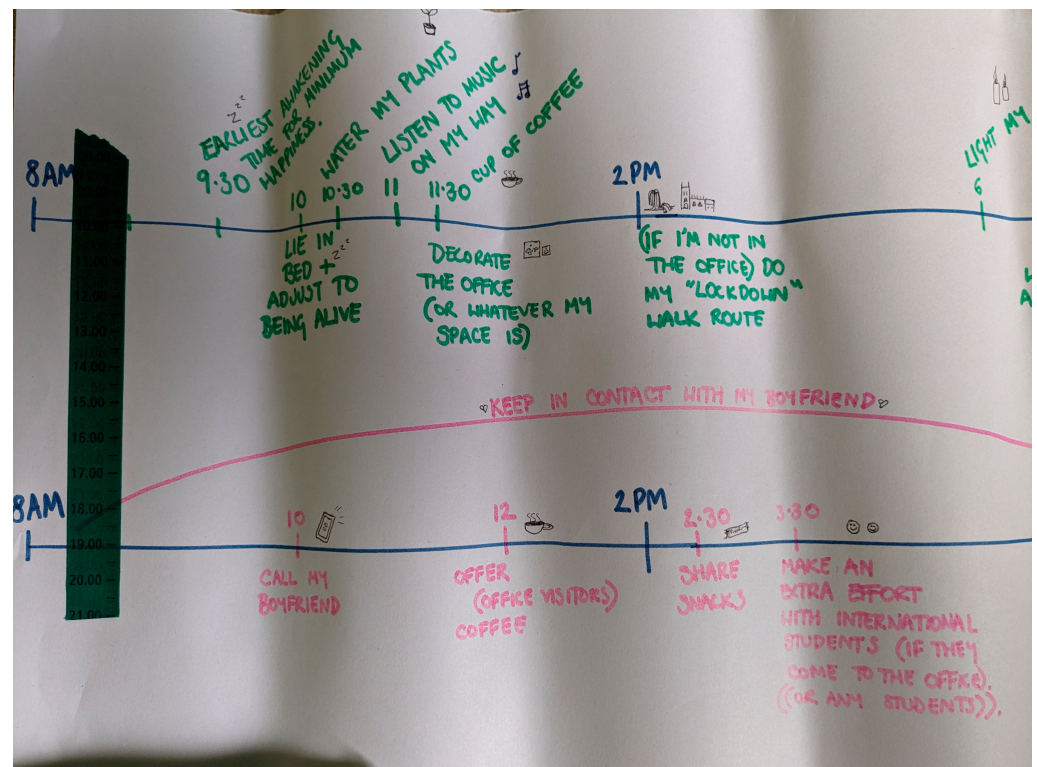 8AM
EARLIEST AWAKENING
TIME FOR MINIMUM
HAPPINESS.
9.30
zzz
10
LIE IN
BED + zzz
ADJUST TO
BEING ALIVE
10.30
WATER MY PLANTS
11
LISTEN TO MUSIC
ON MY WAY
11.30
CUP OF COFFEE
DECORATE
THE OFFICE
(OR WHATEVER MY
SPACE IS)
2PM
(IF I'M NOT IN
THE OFFICE) DO
MY "LOCKDOWN"
WALK ROUTE
6
LIGHT MY
11.00
12.00
13.00
14.00
15.00
16.00
17.00
18.00
19.00
20.00
21.00
KEEP IN CONTACT WITH MY BOYFRIEND
8AM
10
CALL MY
BOYFRIEND
12
OFFER
(OFFICE VISITORS)
COFFEE
2PM
2.30
SHARE
SNACKS
3.30
MAKE AN
EXTRA EFFORT
WITH INTERNATIONAL
STUDENTS (IF THEY
COME TO THE OFFICE).
((OR ANY STUDENTS)).